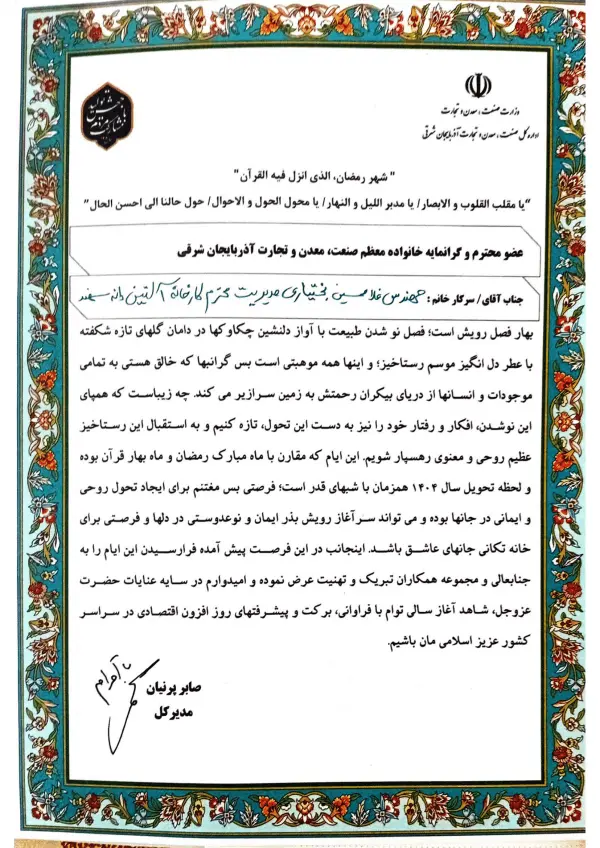 وزارت صنعت، معدن و تجارت
اداره کل صنعت، معدن و تجارت آذربایجان شرقی
"شهر رمضان، الذی انزل فیه القرآن"
"یا مقلب القلوب و الابصار/ یا مدبر اللیل و النهار/ یا محول الحول و الاحوال/ حول حالنا الی احسن الحال"
عضو محترم و گرانمایه خانواده معظم صنعت، معدن و تجارت آذربایجان شرقی
جناب آقای/ سرکار خانم : مهندس غلامحسین بختیاری مدیریت محترم کارخانه دانه سهند
بهار فصل رویش است؛ فصل نو شدن طبیعت با آواز دلنشین چکاوکها در دامان گلهای تازه شکفته
با عطر دل انگیز موسم رستاخیز؛ و اینها همه موهبتی است بس گرانبها که خالق هستی به تمامی
موجودات و انسانها از دریای بیکران رحمتش به زمین سرازیر می کند. چه زیباست که همپای
این نوشدن، افکار و رفتار خود را نیز به دست این تحول، تازه کنیم و به استقبال این رستاخیز
عظیم روحی و معنوی رهسپار شویم. این ایام که مقارن با ماه مبارک رمضان و ماه بهار قرآن بوده
و لحظه تحویل سال ۱۴۰۴ همزمان با شبهای قدر است؛ فرصتی بس مغتنم برای ایجاد تحول روحی
و ایمانی در جانها بوده و می تواند سرآغاز رویش بذر ایمان و نوعدوستی در دلها و فرصتی برای
خانه تکانی جانهای عاشق باشد. اینجانب در این فرصت پیش آمده فرارسیدن این ایام را به
جنابعالی و مجموعه همکاران تبریک و تهنیت عرض نموده و امیدوارم در سایه عنایات حضرت
عزوجل، شاهد آغاز سالی توام با فراوانی، برکت و پیشرفتهای روز افزون اقتصادی در سراسر
کشور عزیز اسلامی مان باشیم.
با احترام
صابر پرنیان
مدیرکل